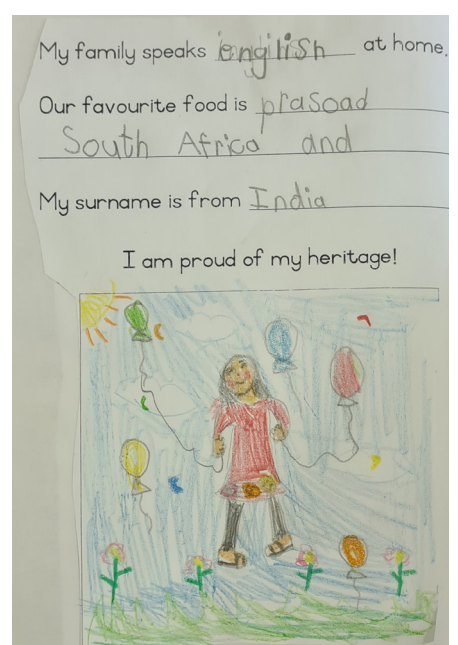 My family speaks english at home.
Our favourite food is prasoad
South Africa and
My surname is from India
I am proud of my heritage!